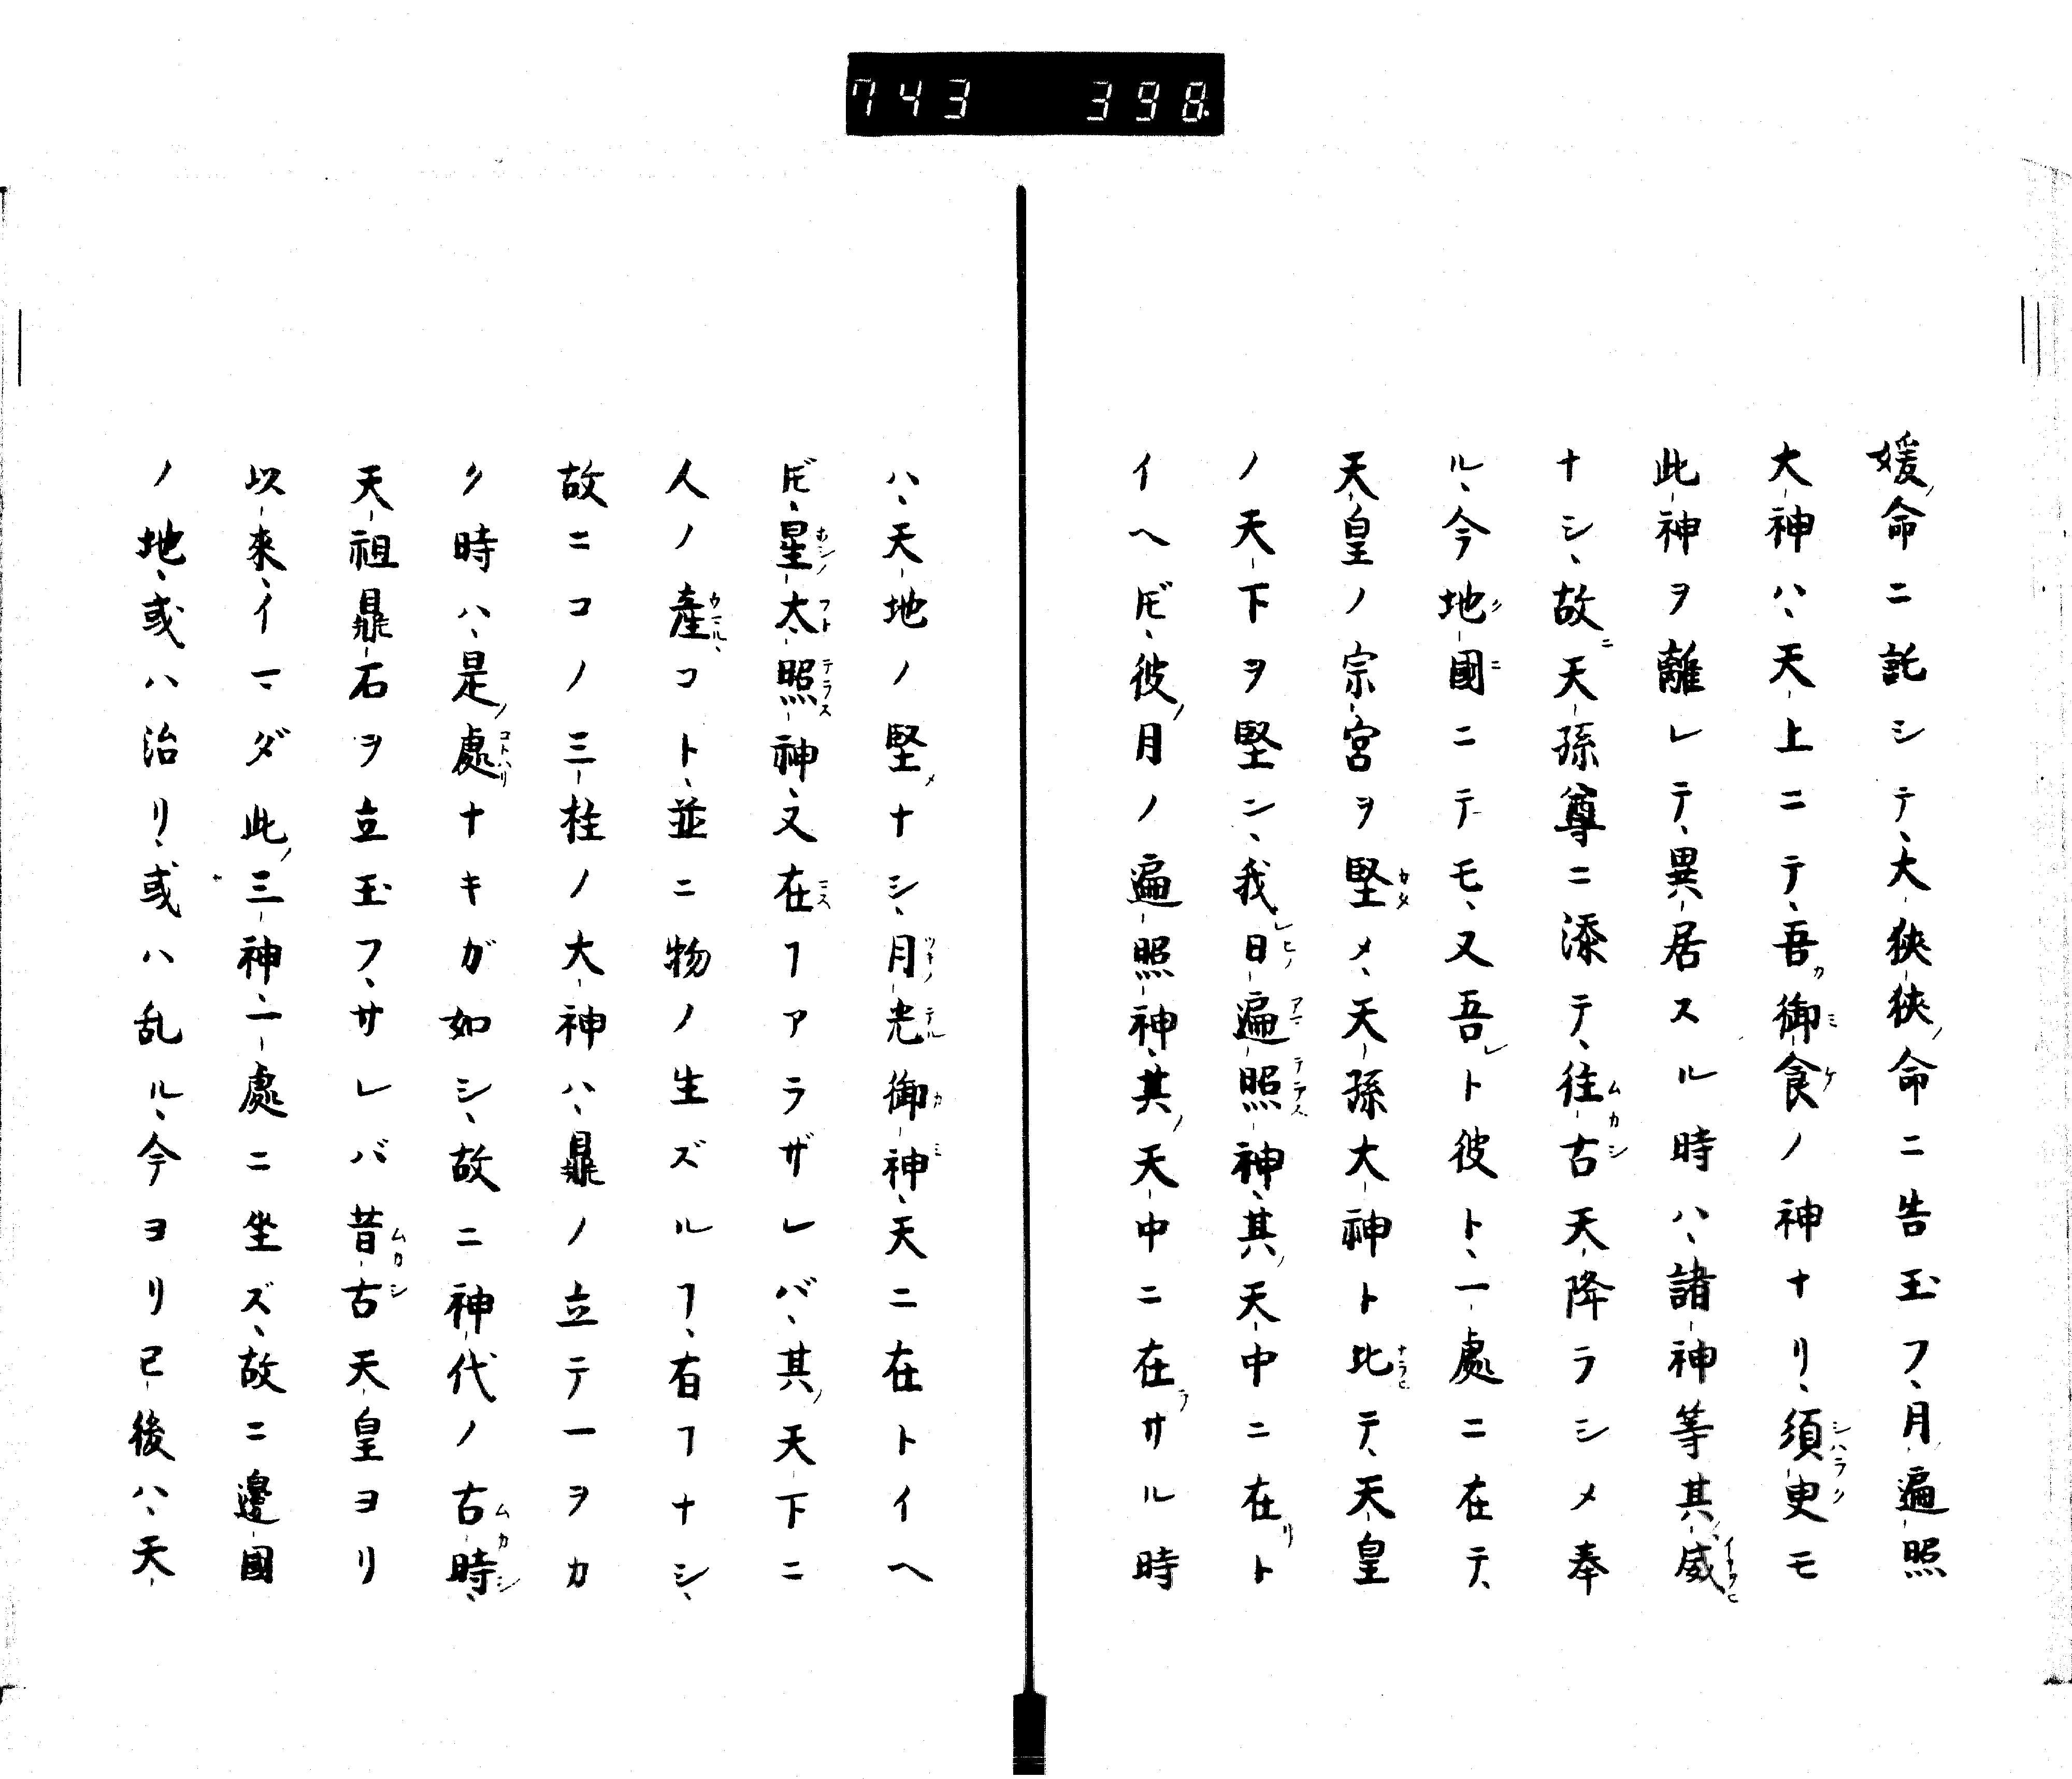 743 398
媛ノ命ニ託シテ、大狹狹ノ命ニ告玉フ、月ノ遍照
大神ハ、天上ニテ、吾カ御食ノ神ナリ、須臾モ
此神ヲ離レテ、異居スル時ハ、諸神等其ノ威
ナシ、故ニ天孫尊ニ添テ、往古天降ラシメ奉
ル、今地國ニテモ、又吾レト彼ト、一處ニ在テ、
天皇ノ宗宮ヲ堅メ、天孫大神ト比テ、天皇
ノ天下ヲ堅ン、我レ日遍照神、其ノ天中ニ在リト
イヘ𪜈、彼ノ月ノ遍照神、其ノ天中ニ在ラサル時
ハ、天地ノ堅メナシ、月光御神、天ニ在トイヘ
𪜈、星太照神、又在ヿアラザレバ、其ノ天下ニ
人ノ産コト、並ニ物ノ生ズルヿ、有ヿナシ、
故ニコノ三柱ノ大神ハ、鼎ノ立テ一ヲカ
ク時ハ、是ノ處ナキガ如シ、故ニ神代ノ古時、
天祖鼎石ヲ立玉フ、サレバ昔古天皇ヨリ
以來、イマダ此ノ三神、一處ニ坐ズ、故ニ邊國
ノ地、或ハ治リ、或ハ乱ル、今ヨリ已後ハ、天